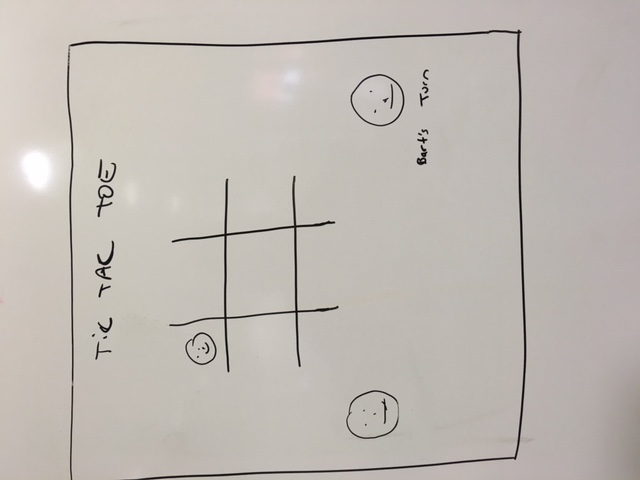 Tic TAC TOE
Bart's Turn